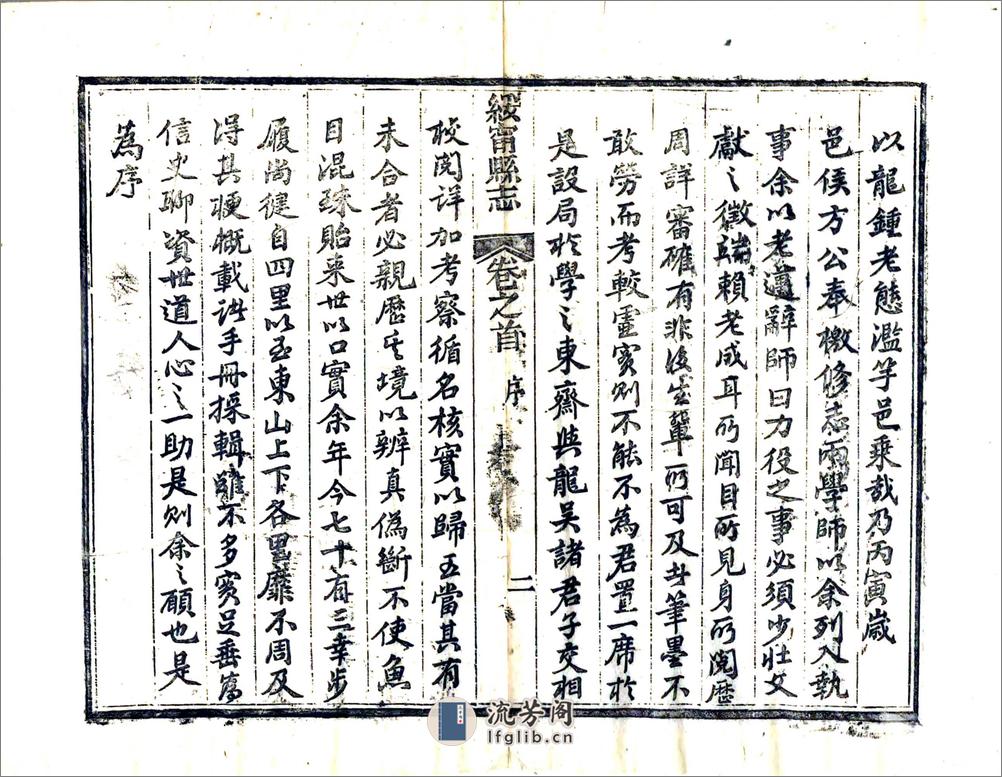 以龍鍾老態濫竽邑乘哉乃丙寅歲
邑侯方公奉檄修志兩學師以余列入執
事余以老邁辭師曰力役之事必須少壯文
獻之徵端賴老成耳所聞目所見身所閱歷
周詳審確有非後生輩所可及且筆墨不
敢勞而考較虛實則不能不為君置一席於
是設局於學之東齋與龍吳諸君子交相
綏甯縣志 卷之首 序 二
校閱詳加考察循名核實以歸至當其有
未合者必親歷其境以辨真偽斷不使魚
目混珠貽來世以口實余年今七十有三幸步
履尚健自四里以至東山上下各里靡不周及
得其梗概載諸手冊採輯雖不多實足垂為
信史聊資世道人心之一助是則余之願也是
為序
流芳阁
lfglib.cn